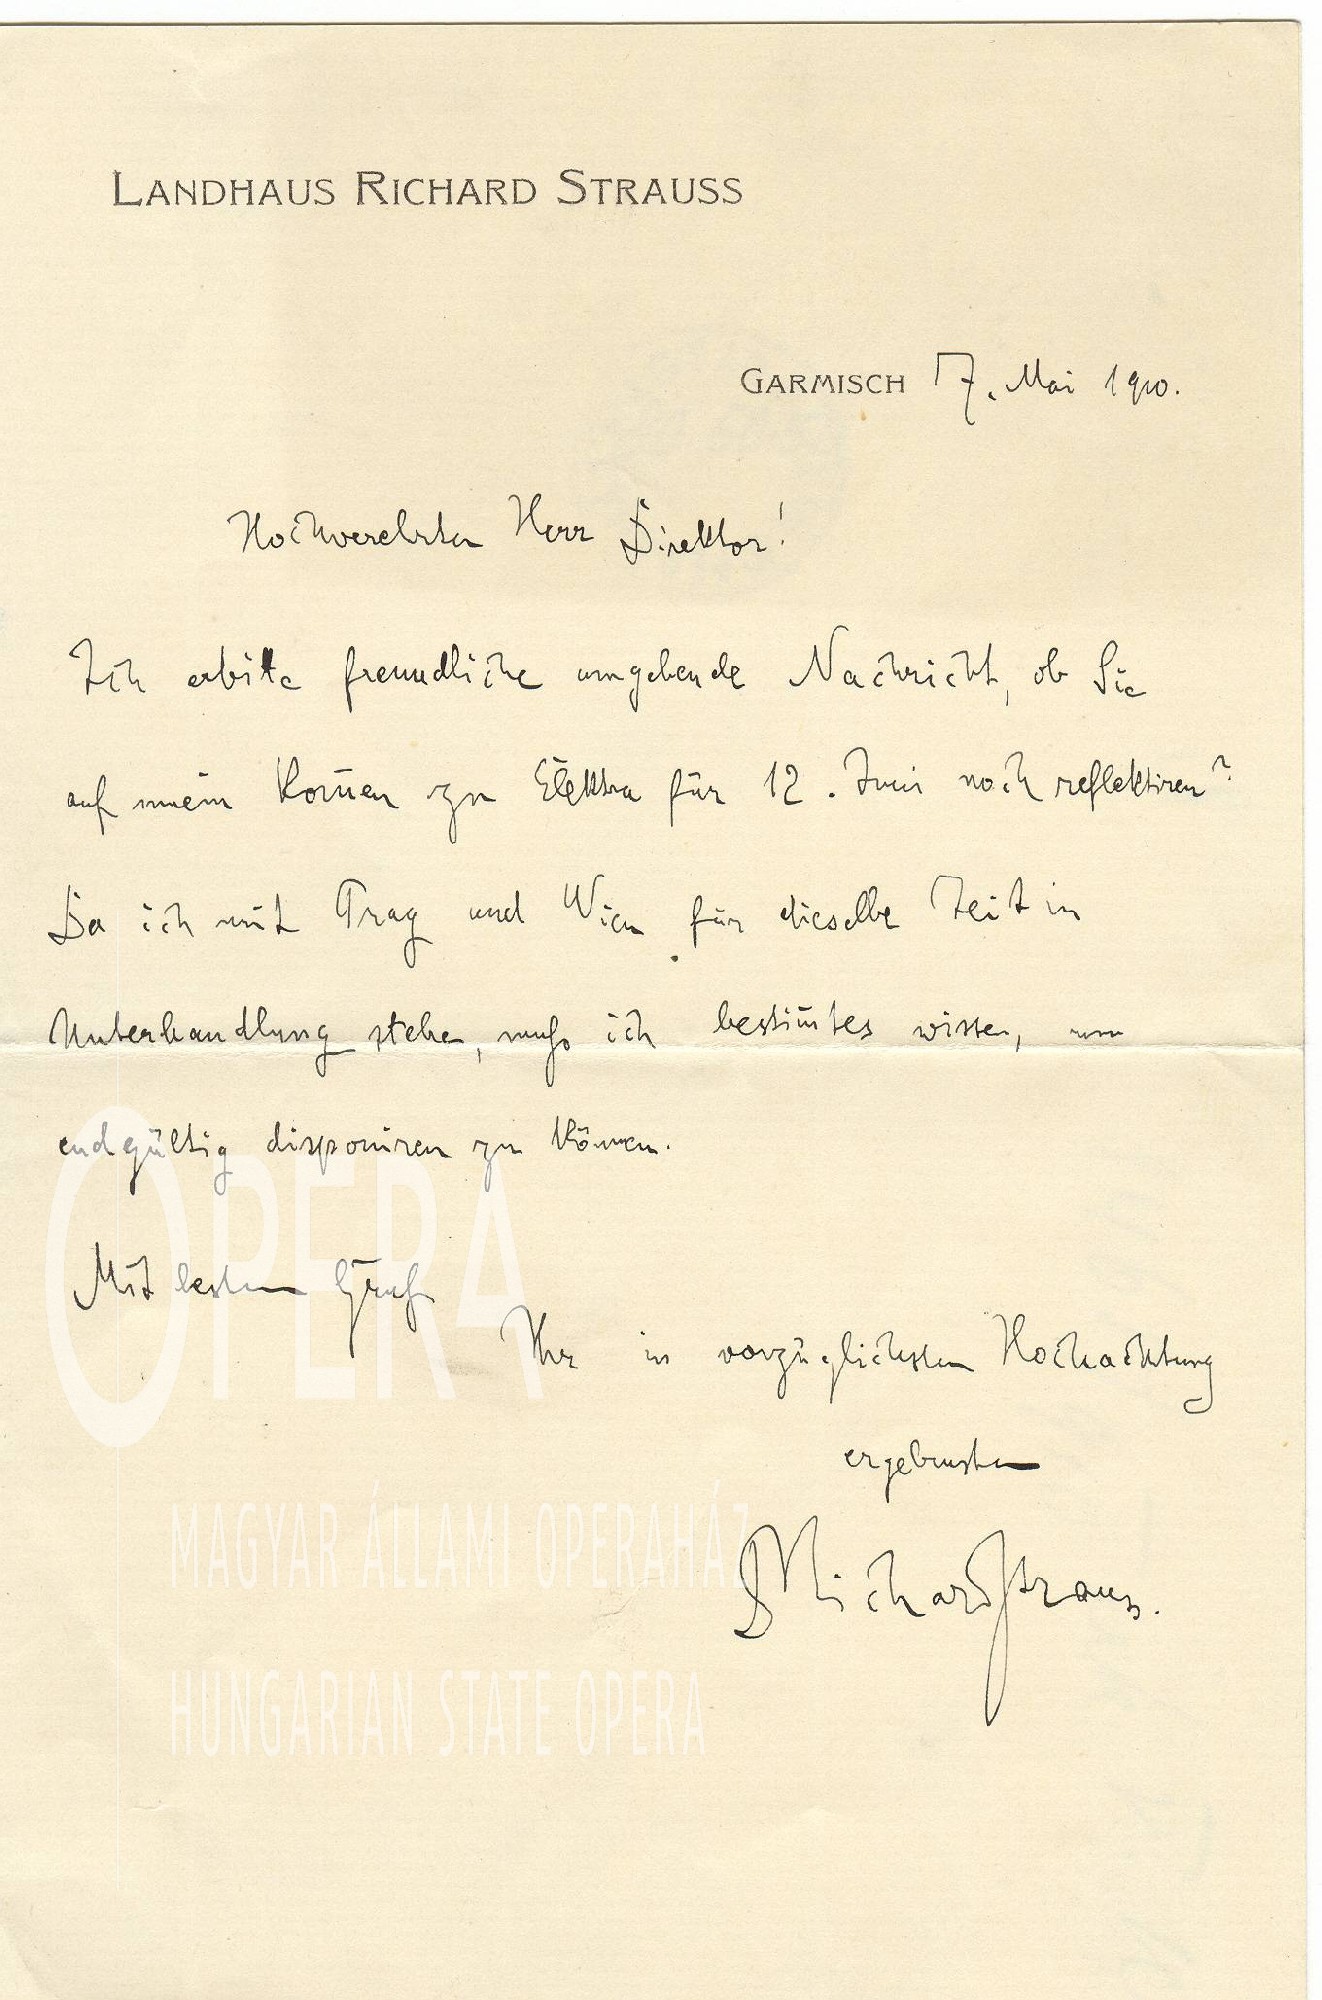 LANDHAUS RICHARD STRAUSS
GARMISCH 7. Mai 1910.
Hochverehrter Herr Direktor!
Ich erbitte freundliche umgehende Nachricht, ob Sie
auf mein Kom̄en zu Elektra für 12. Juni noch reflektiren?
Da ich mit Prag und Wien für dieselbe Zeit in
Unterhandlung stehe, muß ich bestim̄tes wissen, um
endgültig disponiren zu können.
Mit bestem Gruß
Ihr in vorzüglichster Hochachtung
ergebenster
Richard Strauss.
OPERA
MAGYAR ÁLLAMI OPERAHÁZ
HUNGARIAN STATE OPERA